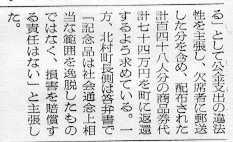 る」として公金支出の違法
性を主張し、欠席者に郵送
した分を含め、配布された
計百四十八人分の商品券代
計七十四万円を町に返還
するよう求めている。一
方、北村町長側は答弁書で
「記念品は社会通念上相
当な範囲を逸脱したもの
ではなく、損害を賠償す
る責任はない」と主張し
た。